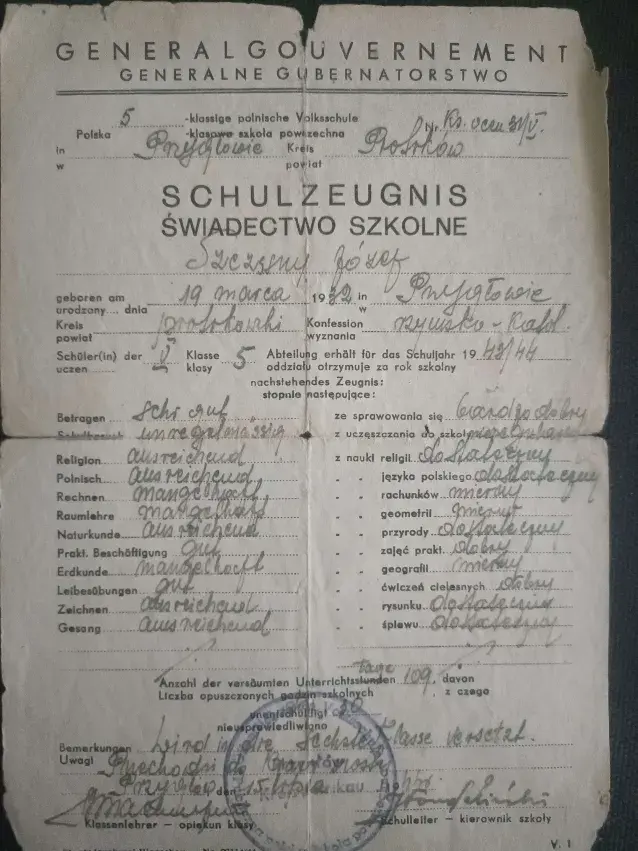 GENERALGOUVERNEMENT
GENERALNE GUBERNATORSTWO
5 -klassige polnische Volksschule
Polska -klasowa szkoła powszechna Nr.
in Przygłowie Kreis Piotrków
w powiat
SCHULZEUGNIS
ŚWIADECTWO SZKOLNE
Szczęsny Józef
geboren am 19 marca 1932 in Przygłowie
urodzony... dnia w
Kreis piotrkowski Konfession rzymsko-katol.
powiat wyznania
Schüler(in) der V Klasse 5 Abteilung erhält für das Schuljahr 1943/44
uczeń klasy oddziału otrzymuje za rok szkolny
nachstehendes Zeugnis:
stopnie następujące:
Betragen sehr gut ze sprawowania się bardzo dobry
Schulbesuch unregelmässig z uczęszczania do szkoły
Religion ausreichend z nauki religii dostateczny
Polnisch ausreichend " " języka polskiego dostateczny
Rechnen mangelhaft " " rachunków mierny
Raumlehre mangelhaft " " geometrii mierny
Naturkunde ausreichend " " przyrody dostateczny
Prakt. Beschäftigung gut " " zajęć prakt. dobry
Erdkunde mangelhaft " " geografii mierny
Leibesübungen gut " " ćwiczeń cielesnych dobry
Zeichnen ausreichend " " rysunku dostateczny
Gesang ausreichend " " śpiewu dostateczny
Tage
Anzahl der versäumten Unterrichtsstunden 109, davon
Liczba opuszczonych godzin szkolnych , z czego
unentschuldigt 30
nieusprawiedliwiono
Bemerkungen wird in die sechste Klasse versetzt.
Uwagi Przechodzi do
Przygłów den 15 lipca
Klassenlehrer - opiekun klasy Schulleiter - kierownik szkoły
V. 1